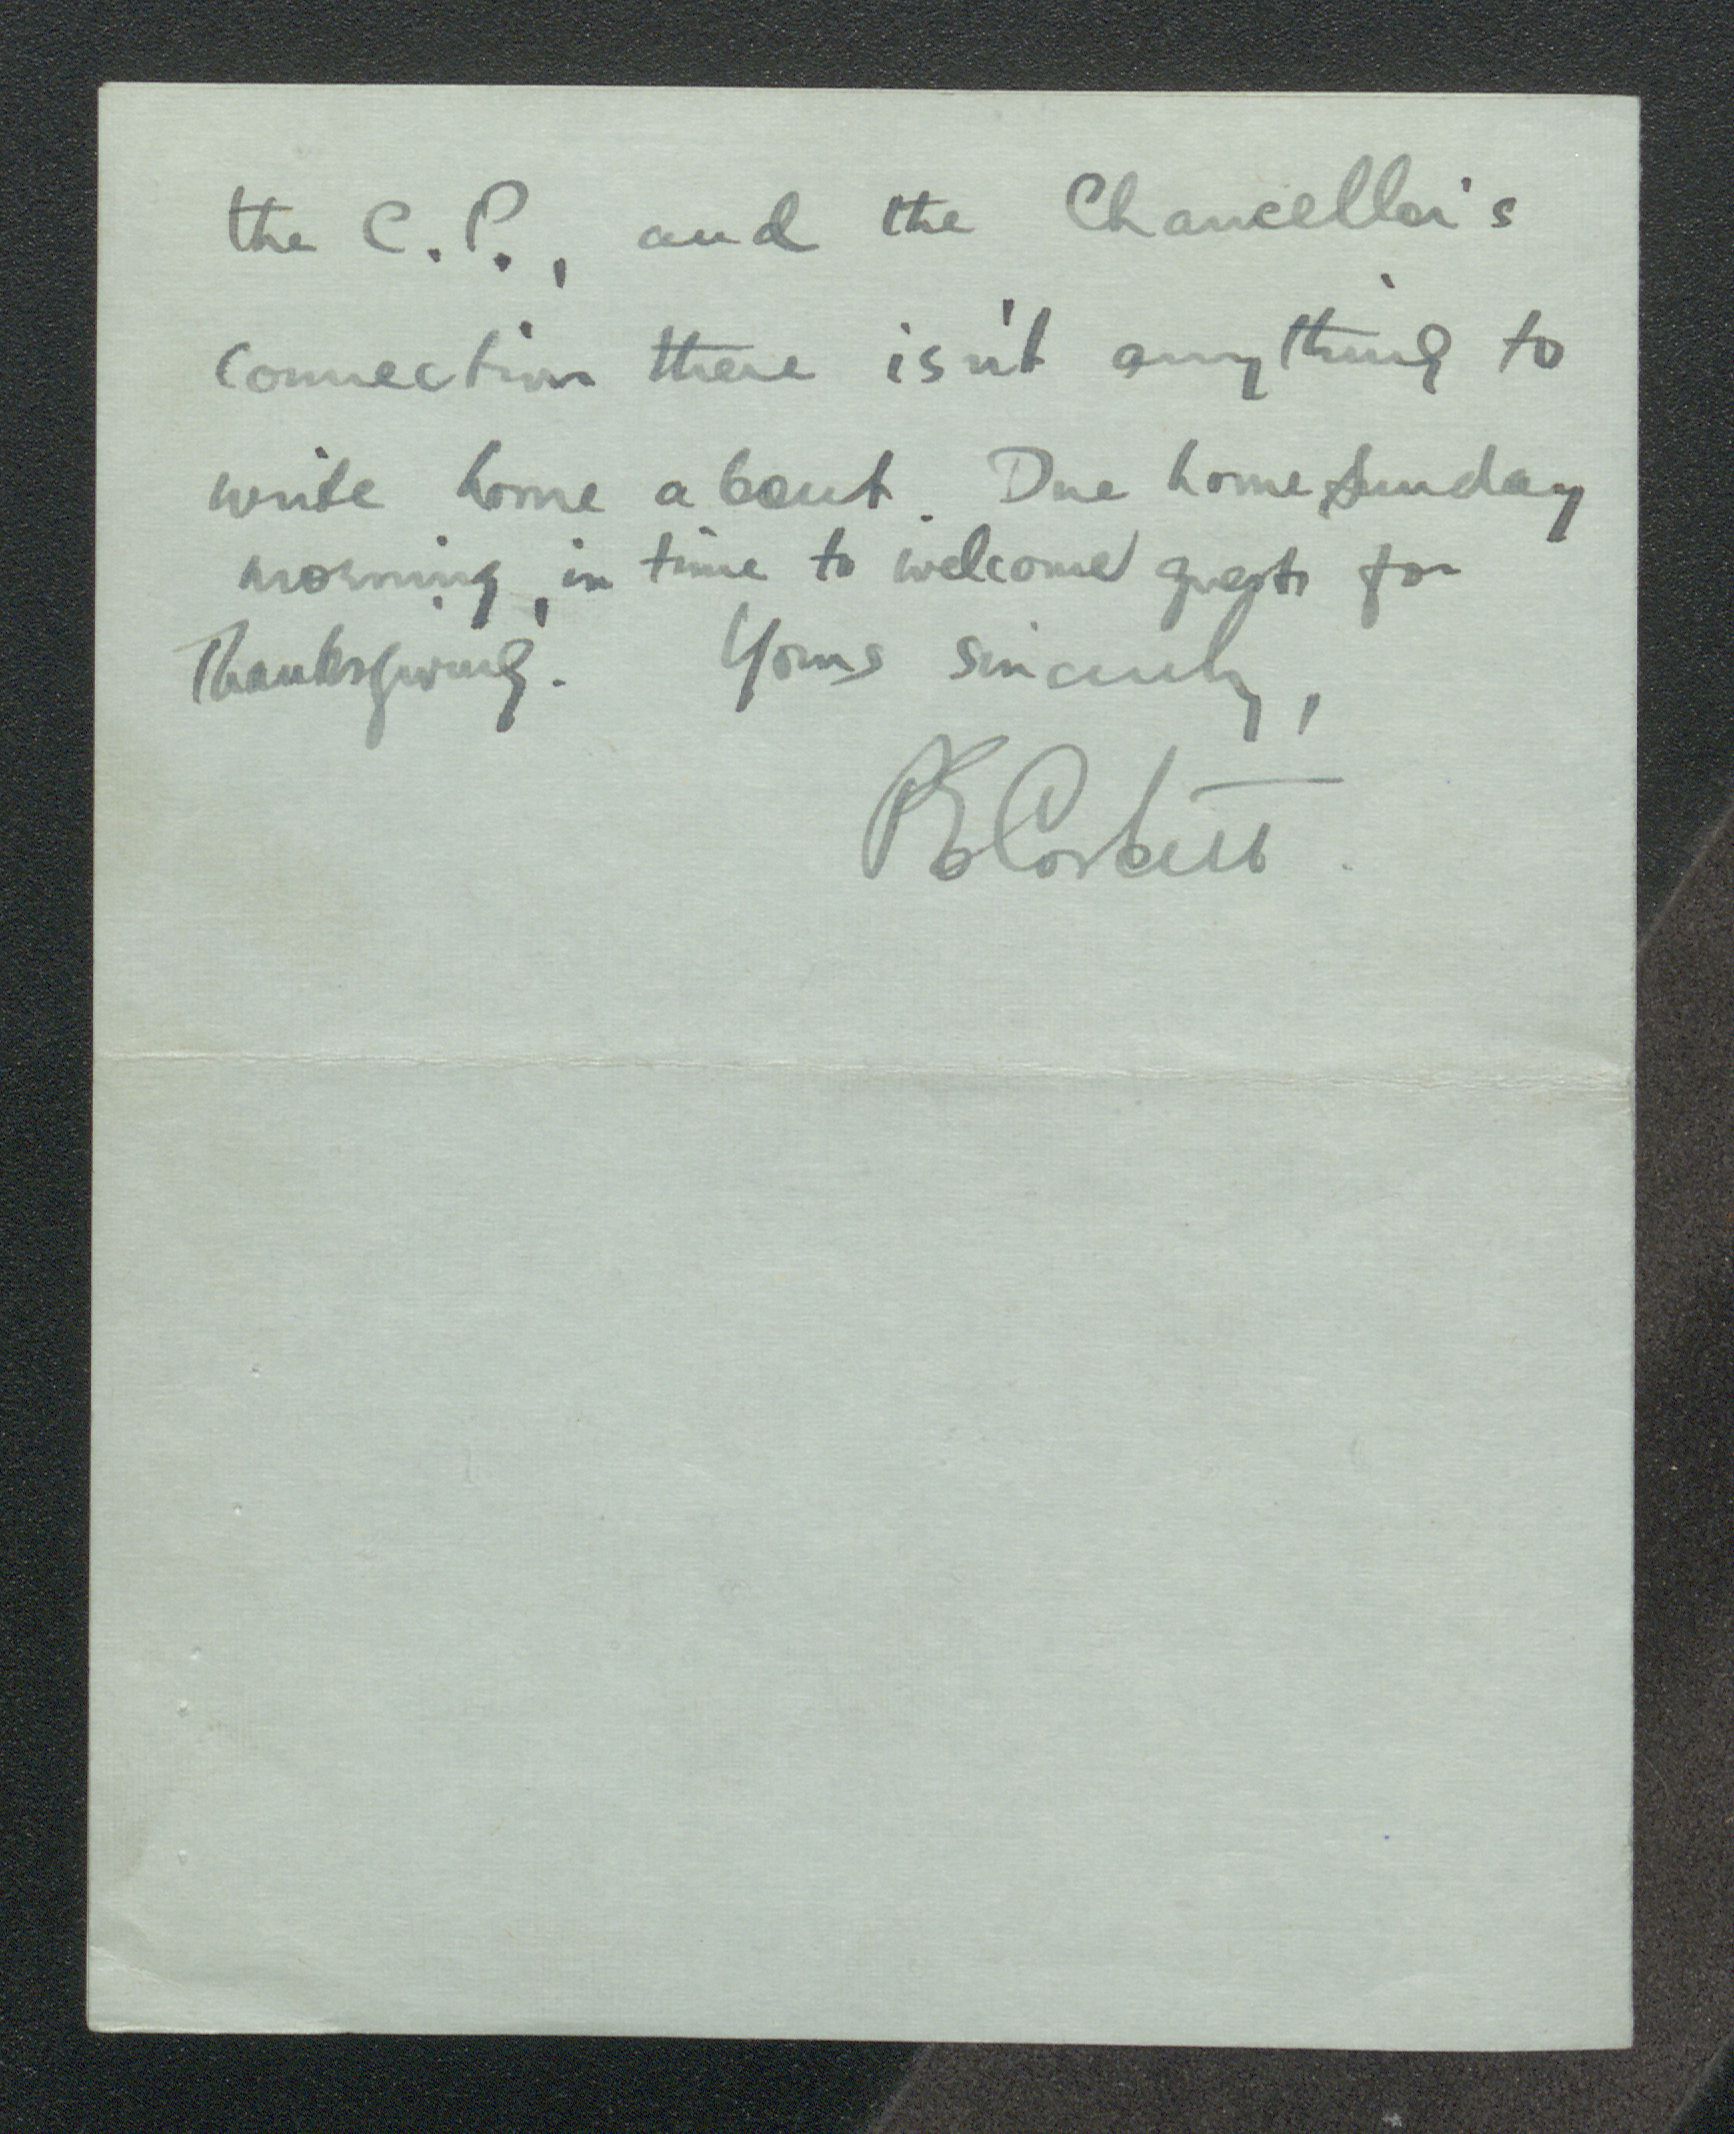 the C.P., and the Chancellor's
connection there isn't anything to
write home about. Due home Sunday
morning, in time to welcome guests for
Thanksgiving. Yours sincerely,
PE Corbett.